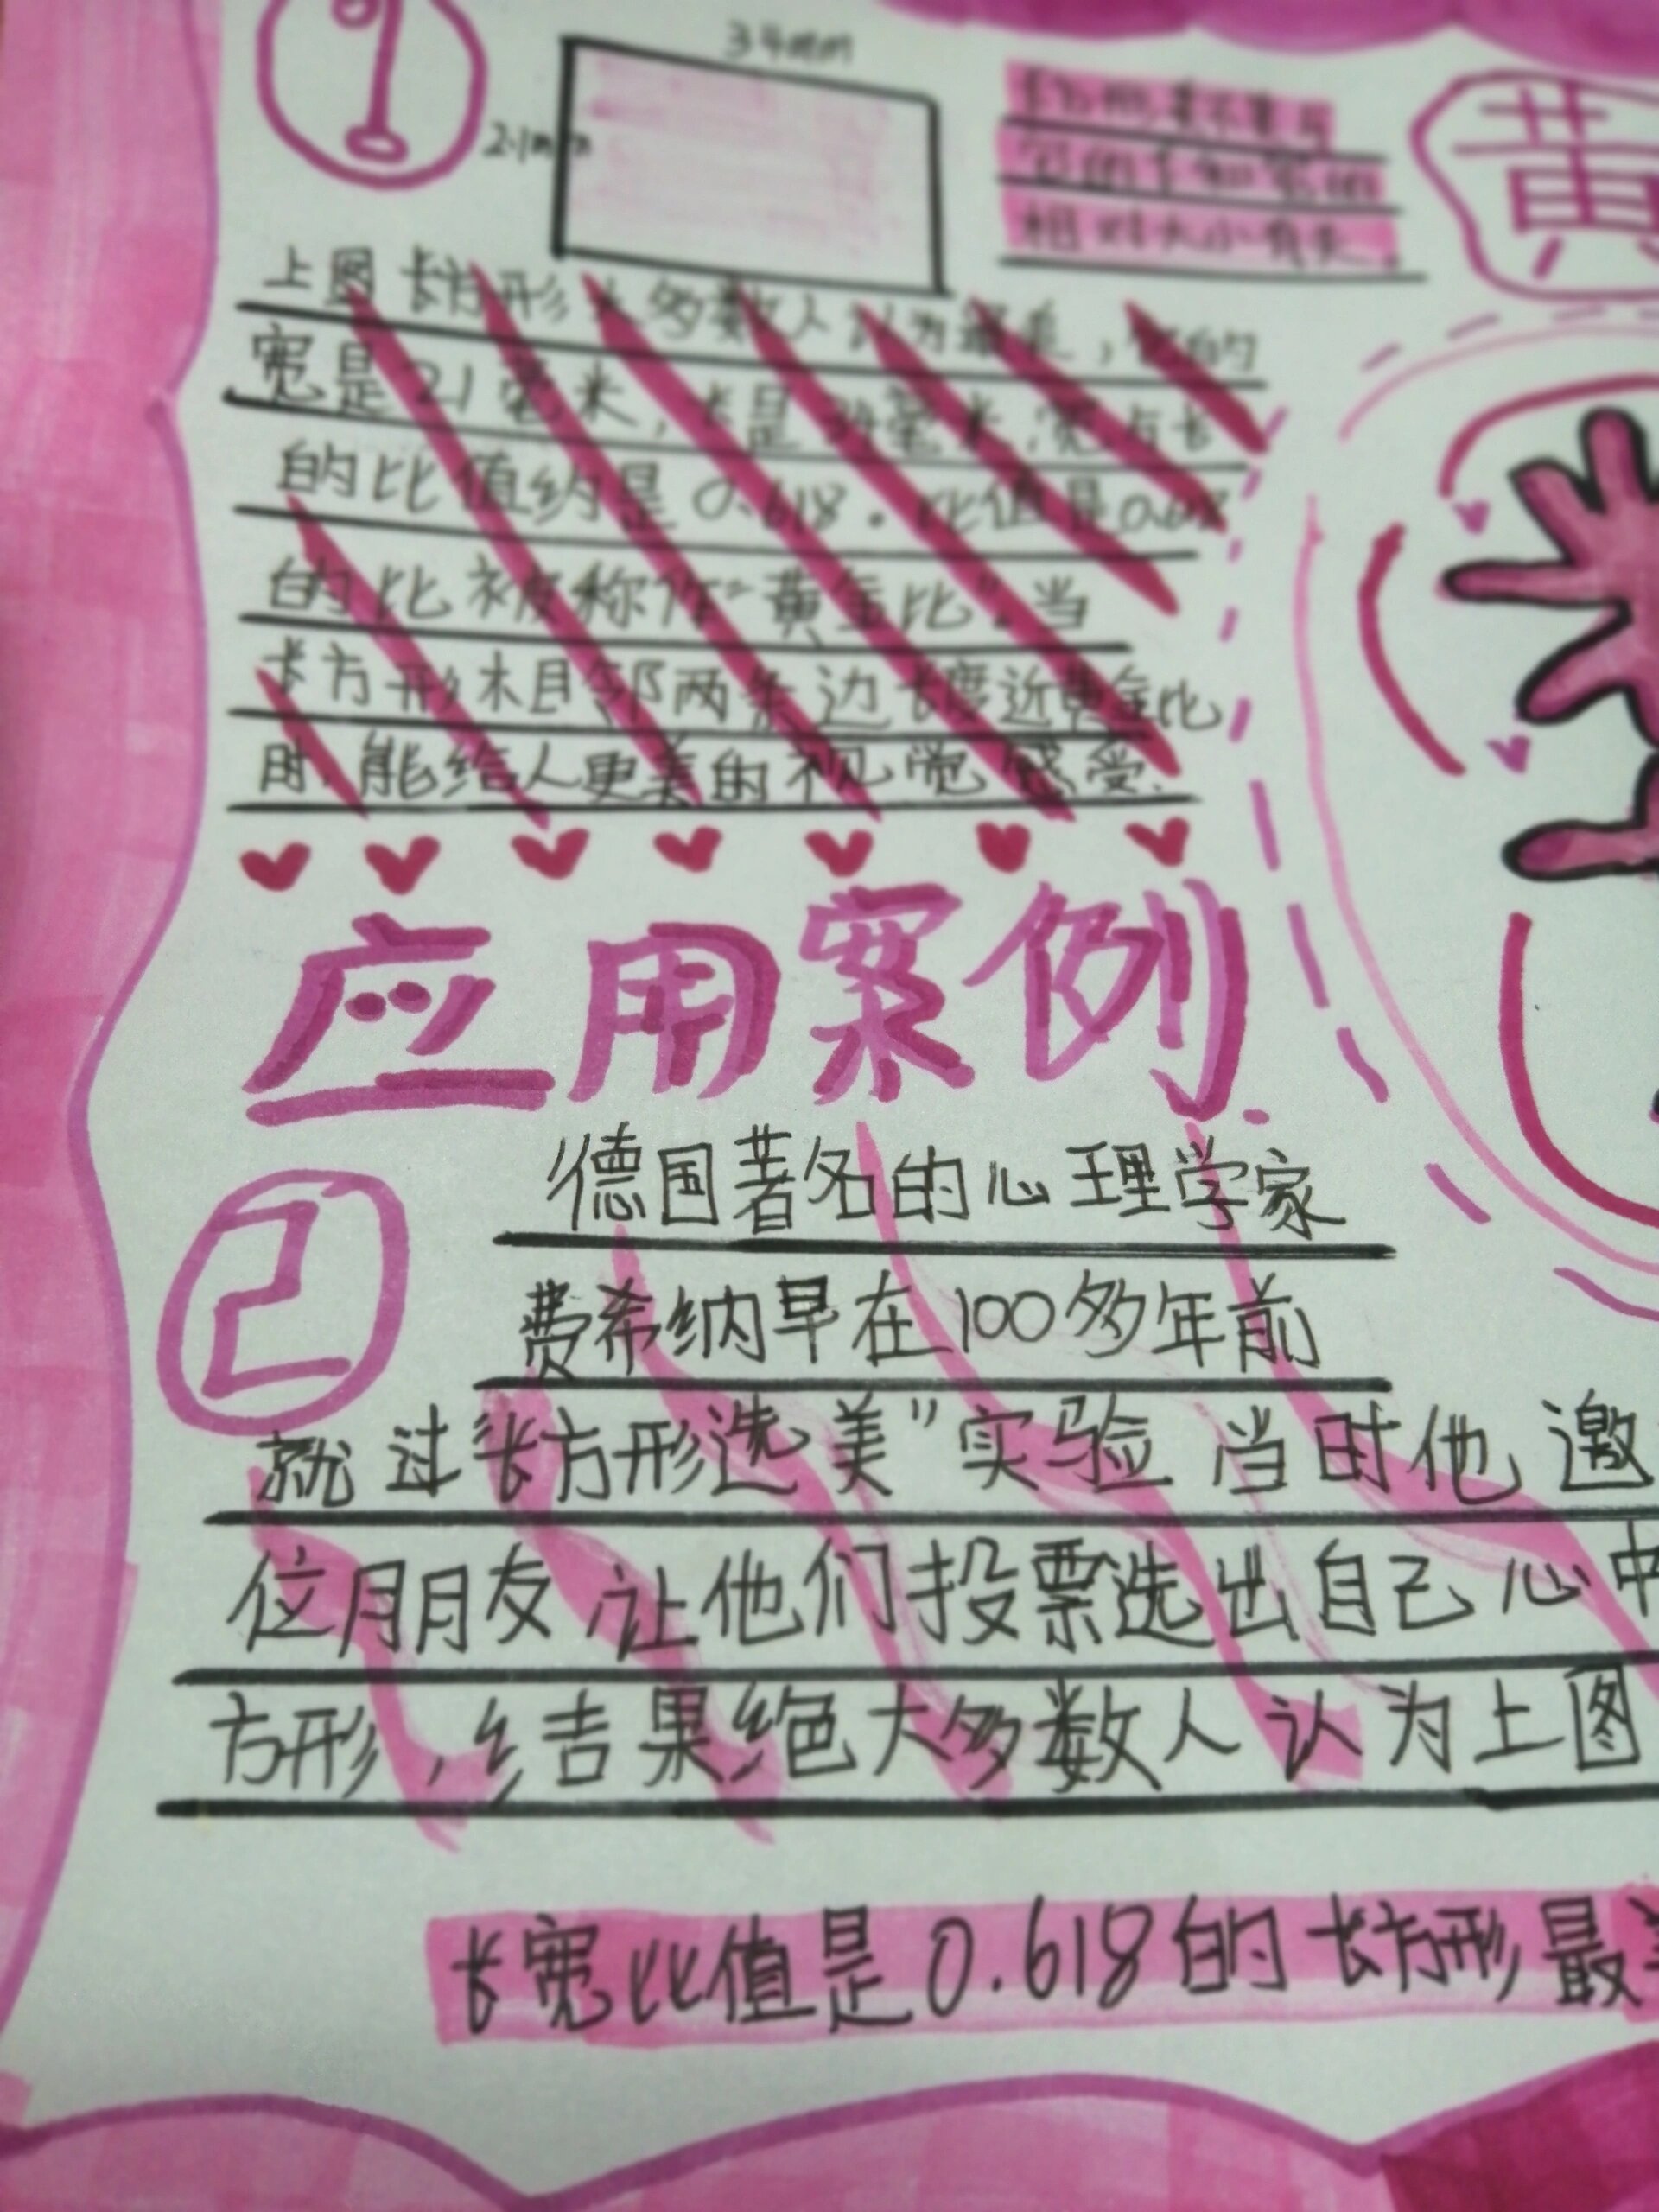 1
34mm
21mm
长方形美不美与
它的长和宽的
相对大小有关。
黄
上图长方形大多数人认为最美，它的
宽是21毫米，长是34毫米，宽与长
的比值约是0.618。比值是0.618
的比被称作“黄金比”。当
长方形相邻两条边长度近黄金比
时，能给人更美的视觉感受.
应用案例
2
德国著名的心理学家
费希纳早在100多年前
就过“长方形选美”实验 当时他邀
位朋友 让他们投票选出自己心中
方形，结果绝大多数人认为上图
长宽比值是0.618的长方形最美